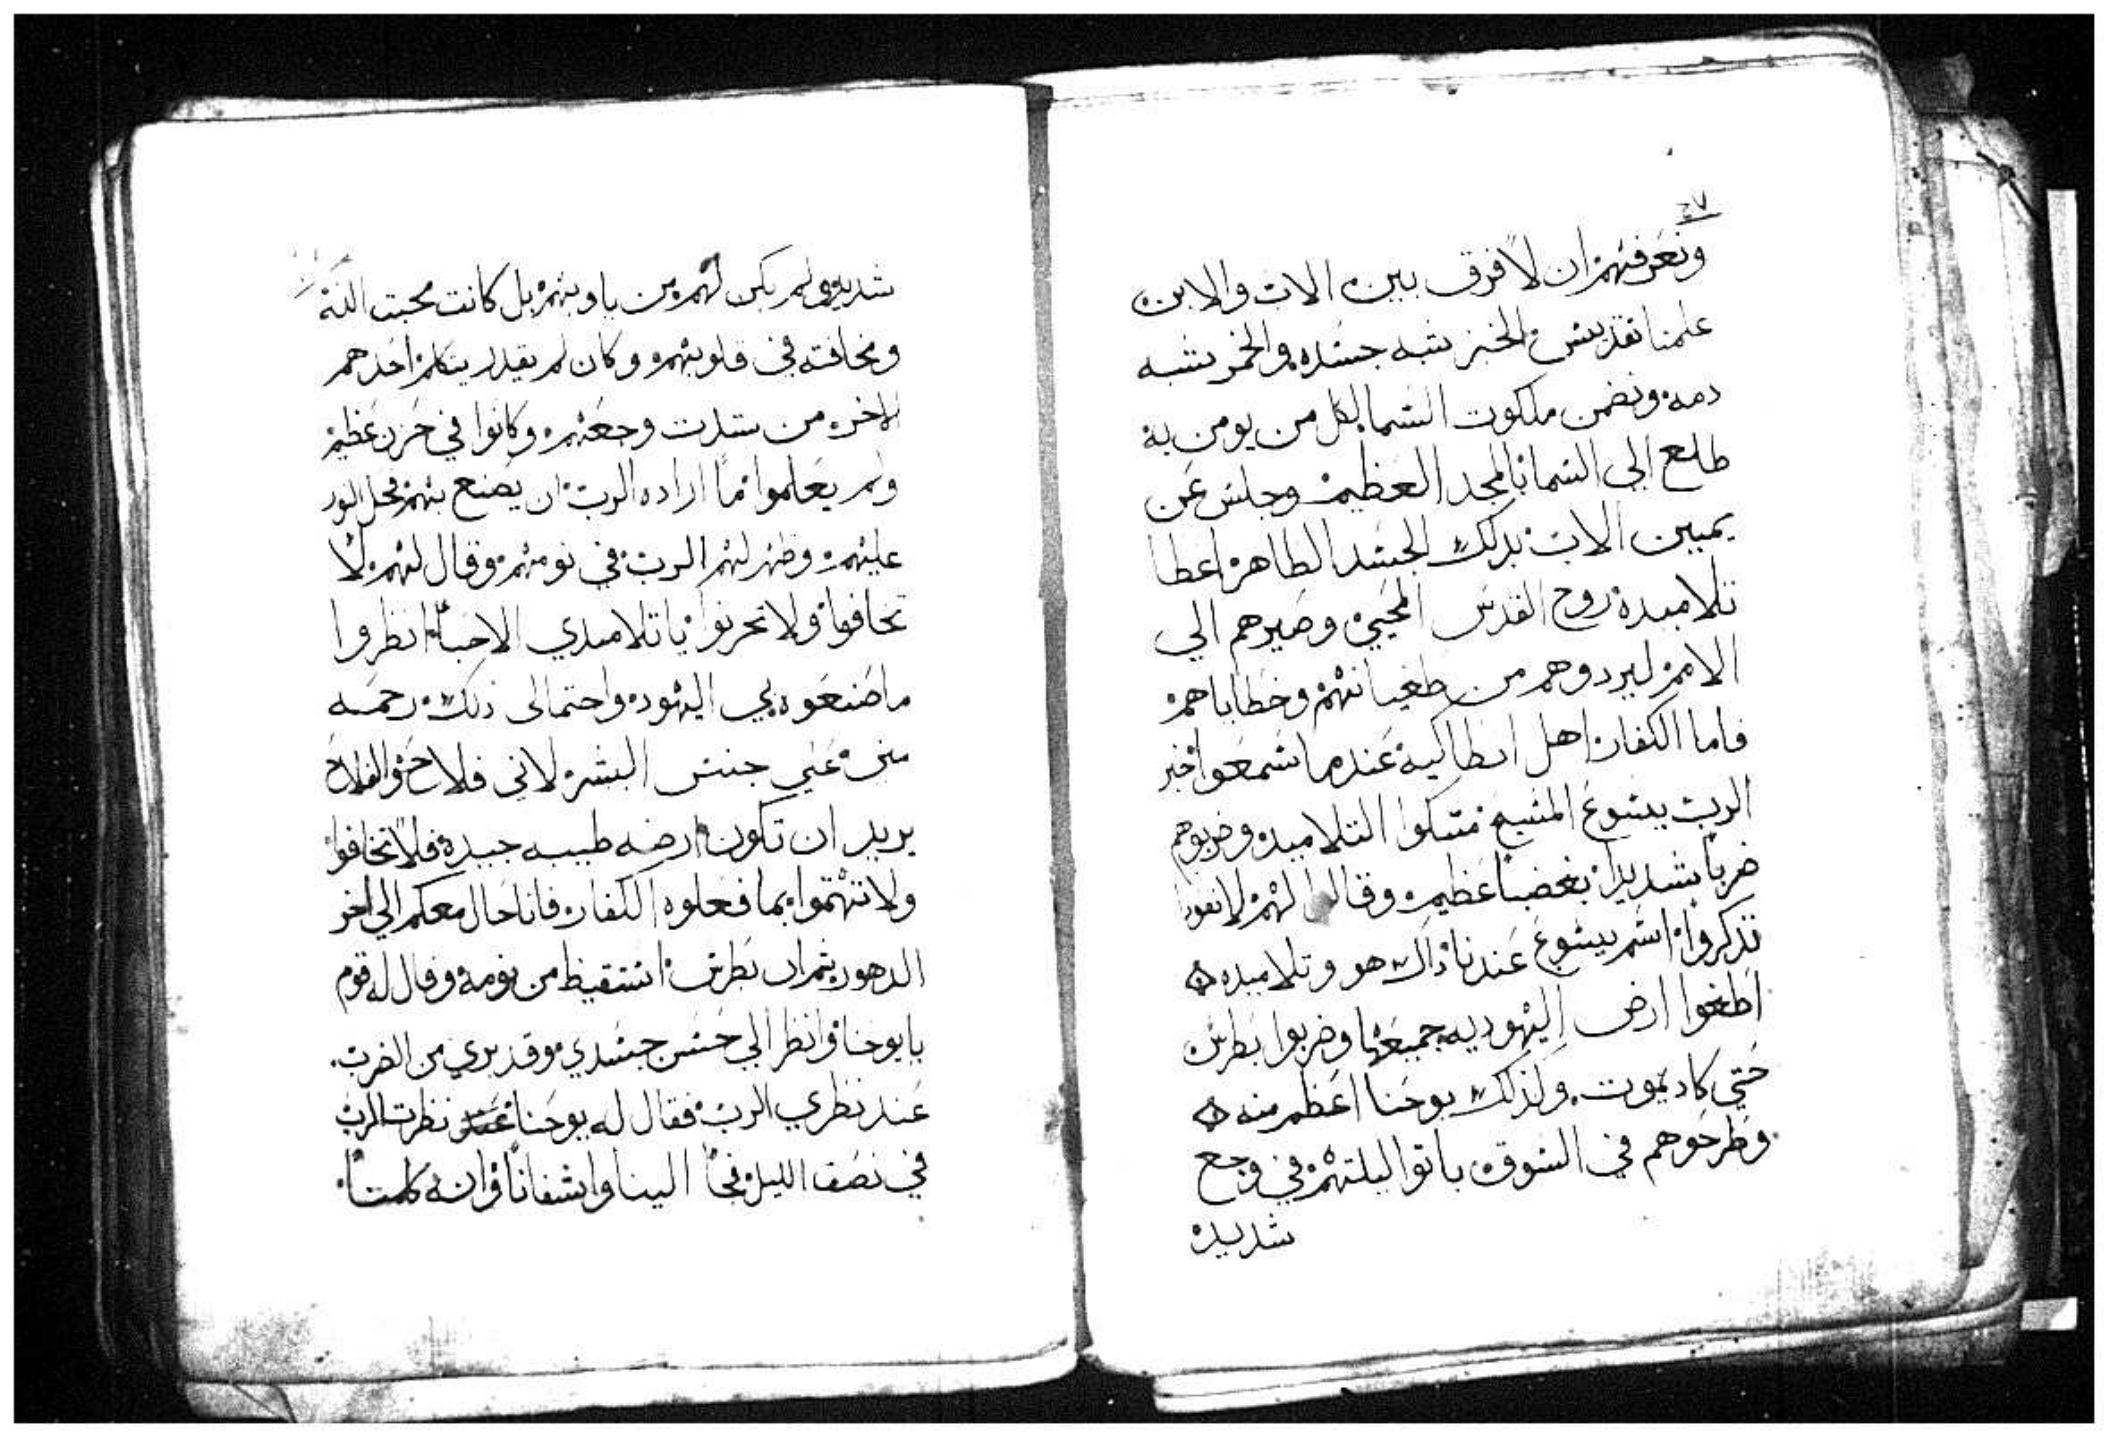 ونعرفهم ان لا فرق بين الاب والابن
علمنا تقديس الخبز شبه جسده والخمر يشبه
دمه ونضمن ملكوت السما لكل من يومن به
طلع الي السما بالمجد العظيم وجلس عن
يمين الاب بدلك الجسد الطاهر اعطا
تلاميده روح القدس المحيي وصيرهم الي
الامم ليردوهم من طغيانهم وخطاياهم
فاما الكفار اهل انطاكيه عندما سمعوا خبر
الرب يسوع المسيح مسكوا التلاميد وضربوهم
ضربا شديدا بغضبا عظيم وقالوا لهم لا تعودوا
تذكروا اسم يسوع عندنا ذاك هو وتلاميده
اطغوا ارض اليهوديه جميعها وضربوا بطرس
حتي كاد يموت وكذلك يوحنا اعظم منه
وطرحوهم في السوق باتوا ليلتهم في وجع
شديد
شديد ولم يكن لهم من ياويهم بل كانت محبت الله
ومخافته في قلوبهم وكان لم يقدر يتكلم احدهم
الاخر من شدت وجعهم وكانوا في حزن عظيم
ولم يعلموا ما اراده الرب ان يصنع بهم فحل النور
عليهم وظهر لهم الرب في نومهم وقال لهم لا
تخافوا ولا تحزنوا يا تلاميدي الاحبا انظروا
ما صنعوه بي اليهود واحتمالى ذلك رحمه
مني علي جنس البشر لاني فلاح حق والفلاح
يريد ان تكون ارضه طيبه جيده فلا تخافوا
ولا تهتموا بما فعلوه الكفار فانا حال معكم الي اخر
الدهور ثم ان بطرس استيقظ من نومه وقال له قوم
يا يوحنا وانظر الي حسن جسدي وقد بري من الضرب
عند نظري الرب فقال له يوحنا نظرت الرب
في نصف الليل نحا الينا واشفانا وانه كلمنا